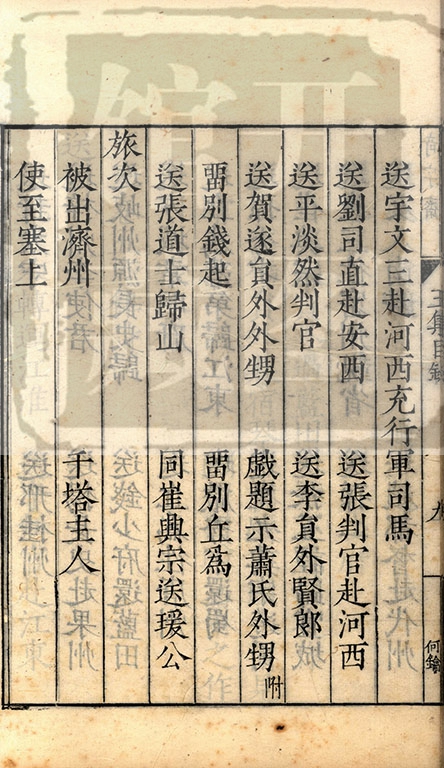 王集目錄
九
何鑰
送宇文三赴河西充行軍司馬
送劉司直赴安西　送張判官赴河西
送平淡然判官　送李貟外賢郎
送賀遂貟外外甥　戲題示蕭氏外甥附
畱別錢起　畱別丘爲
送張道士歸山　同崔興宗送瑗公
旅次
被出濟州　千塔主人
使至塞上